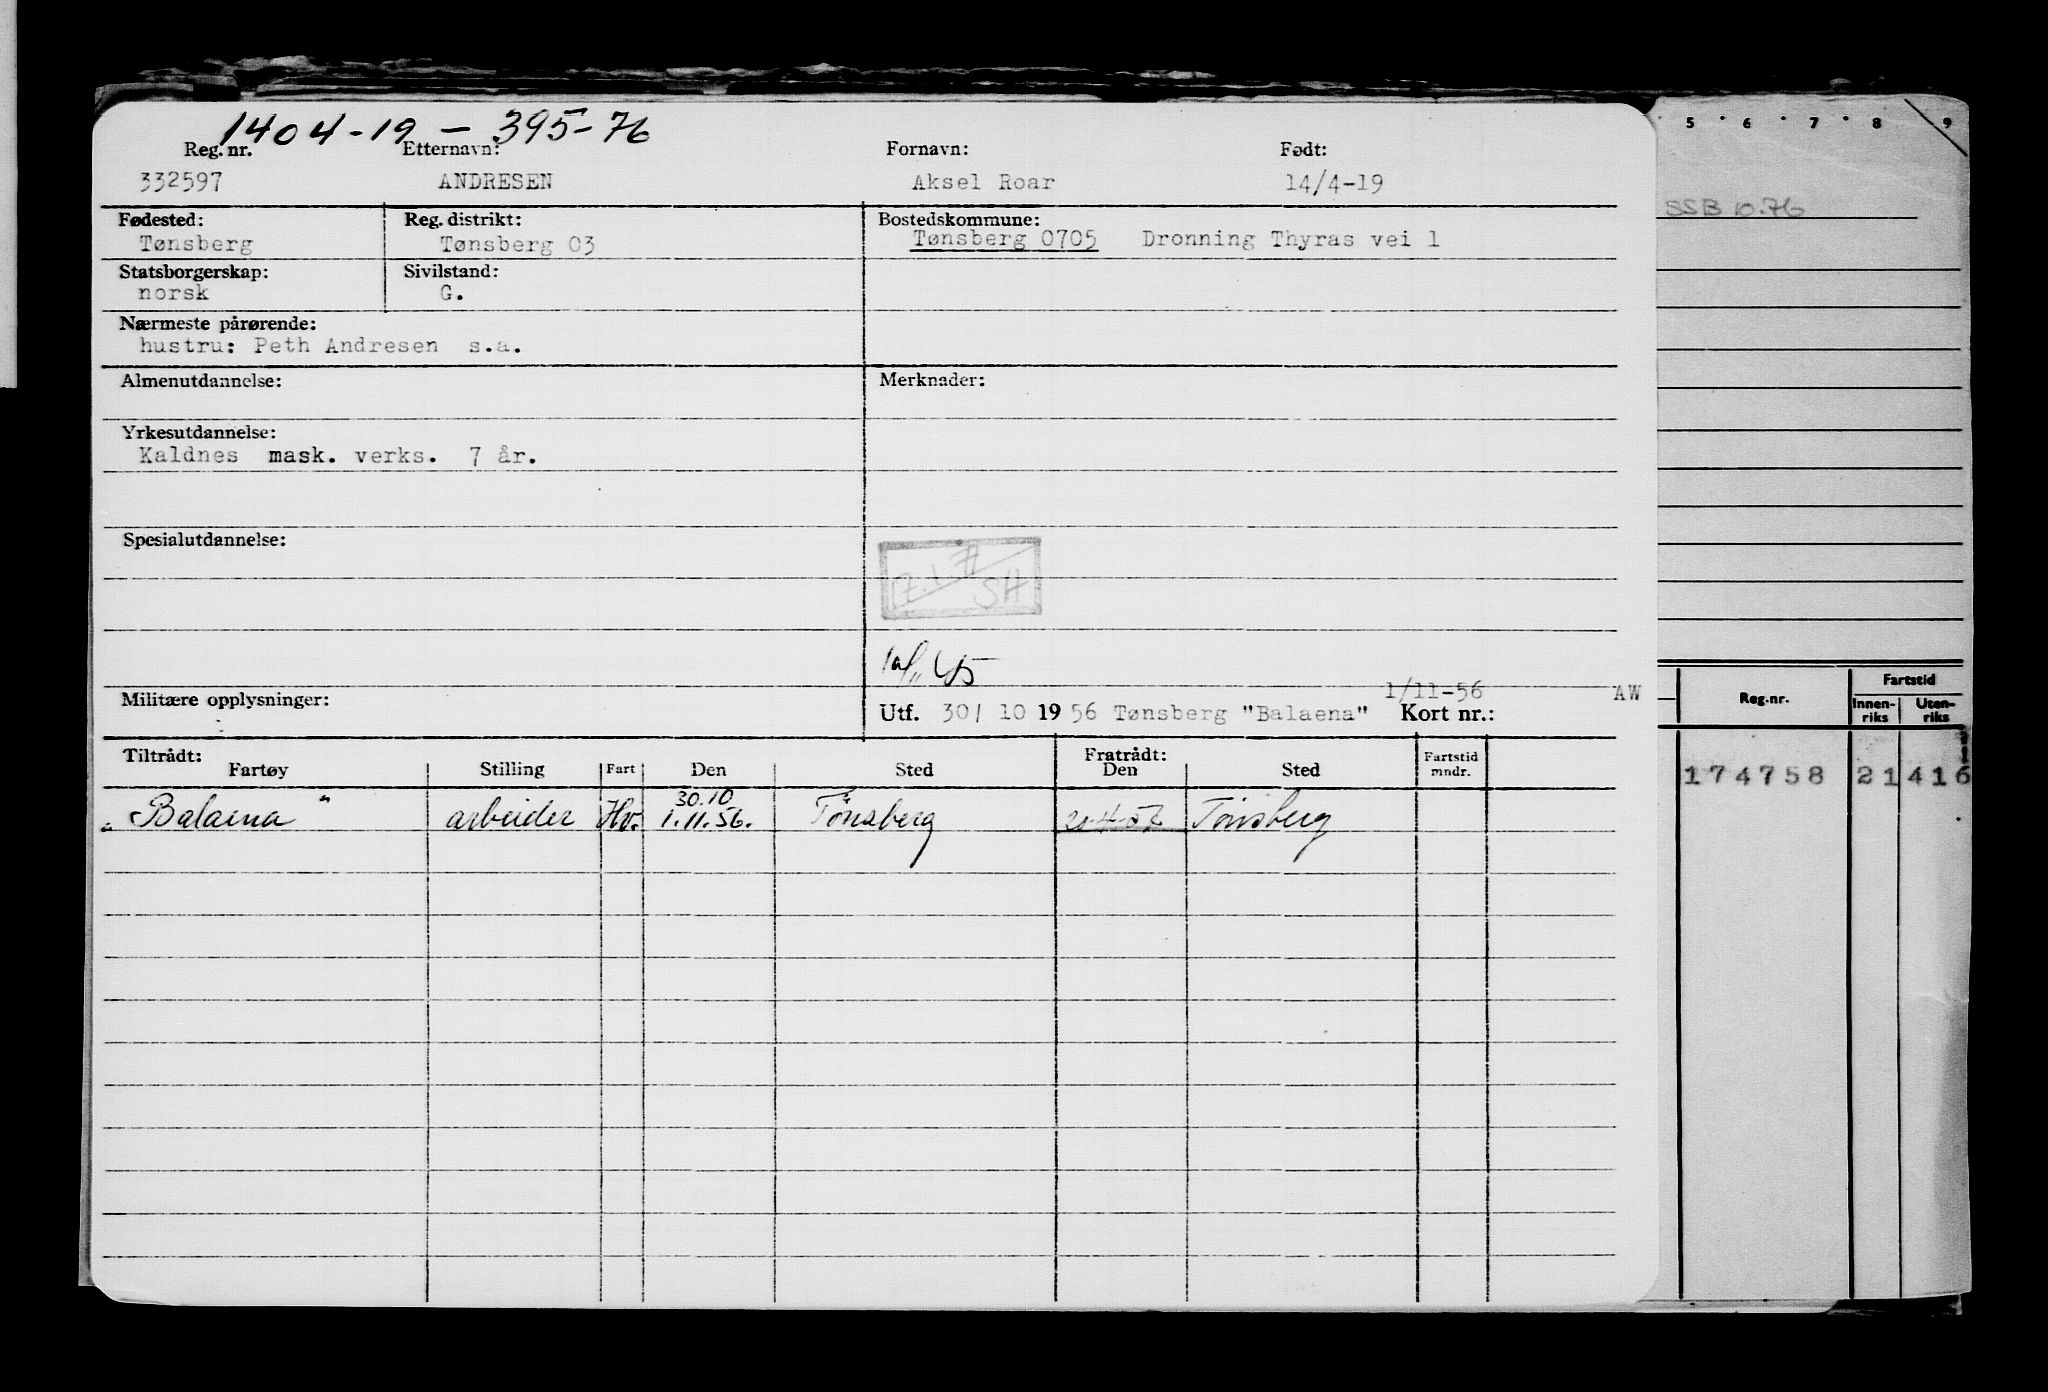 1404-19 - 395-76
Reg. nr. Etternavn: Fornavn: Født:
332597 ANDRESEN Aksel Roar 14/4-19
Fødested: Reg. distrikt: Bostedskommune:
Tønsberg Tønsberg 03 Tønsberg 0705 Dronning Thyras vei 1
Statsborgerskap: Sivilstand:
norsk G.
Nærmeste pårørende:
hustru: Peth Andresen s.a.
Almenutdannelse: Merknader:
Yrkesutdannelse:
Kaldnes mask. verks. 7 år.
Spesialutdannelse:
SH
1/11-56 AW
Militære opplysninger: Utf. 30/ 10 1956 Tønsberg "Balaena" Kort nr.:
Tiltrådt: Fratrådt:
Fartøy Stilling Fart Den Sted Den Sted Fartstid mndr.
30.10
"Balaena" arbeider Hv. 1.11.56. Tönsberg Tönsberg
5 6 7 8 9
SSB 10.76
Reg.nr. Fartstid
Innen-riks Uten-riks
174758 21 416